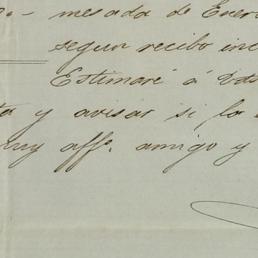 mesada de Ener
segun recibo inc
Estimaré á Vds
y avisar si lo
muy affo. amigo y